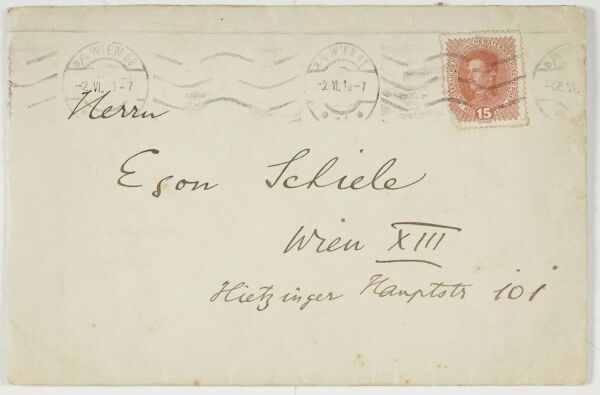 WIEN
-2.VI.1 -7
WIEN
-2.VI.1 -7
-2.VI.
15
Herrn
Egon Schiele
Wien XIII
Hietzinger Hauptstr 101